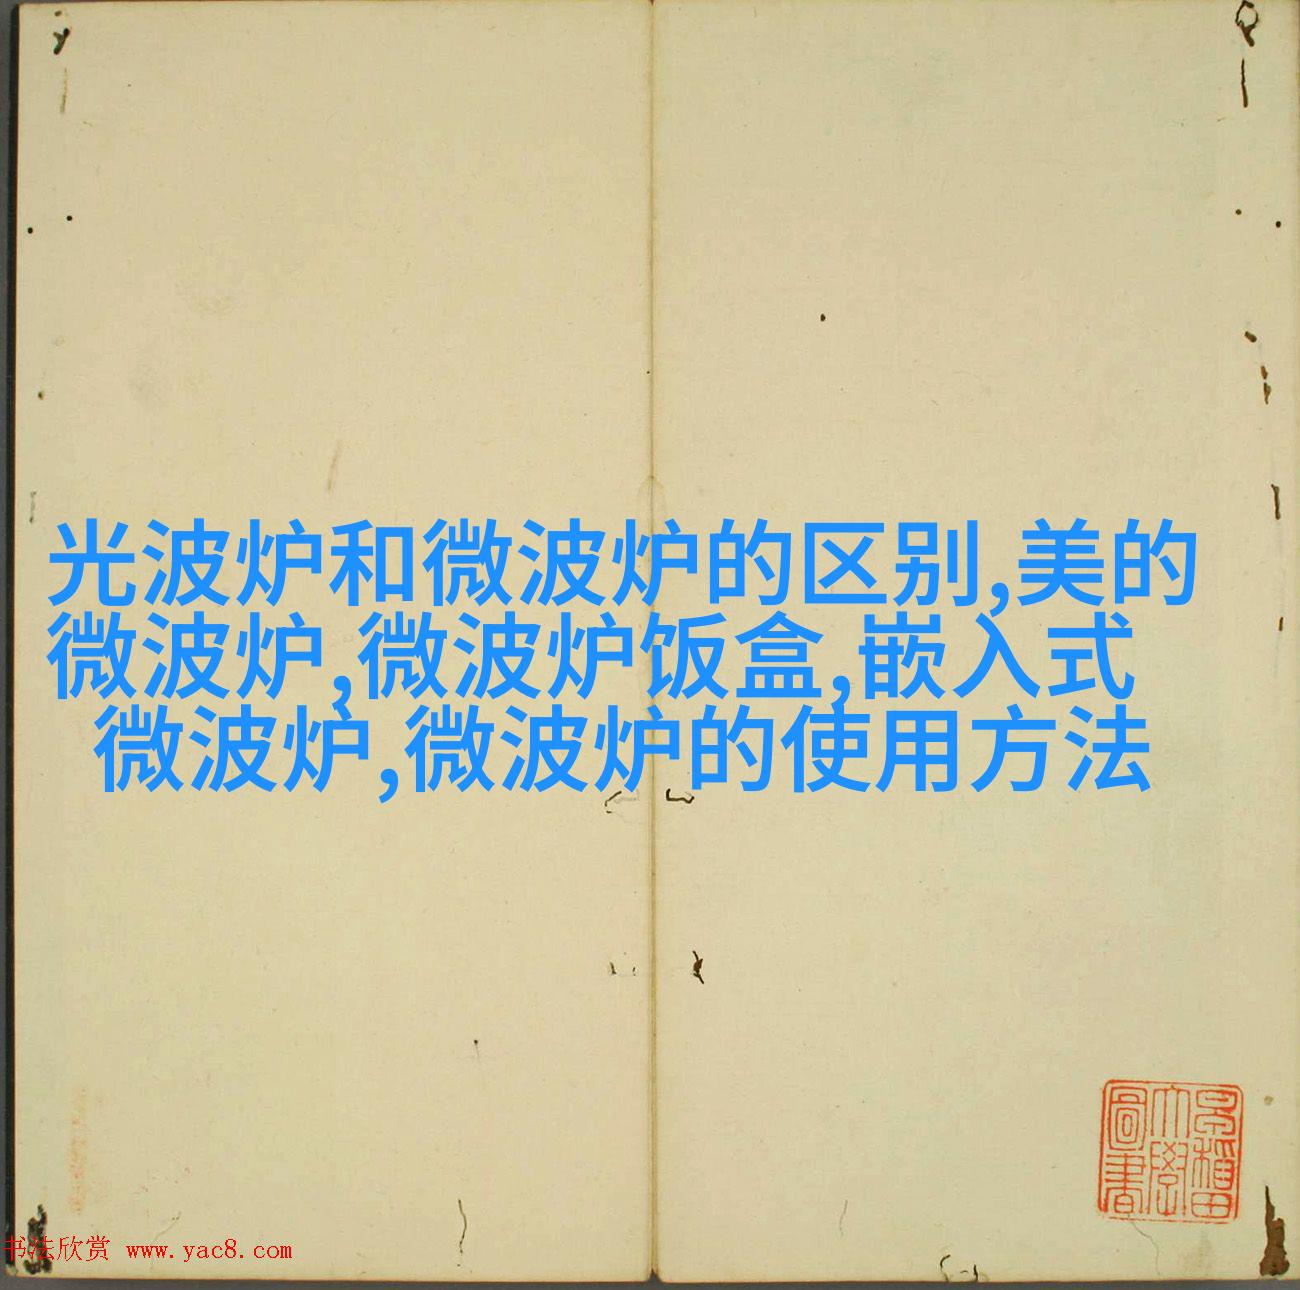 光波炉和微波炉的区别,美的
微波炉,微波炉饭盒,嵌入式
微波炉,微波炉的使用方法
早稲田
大學
圖書
书法欣赏 www.yac8.com